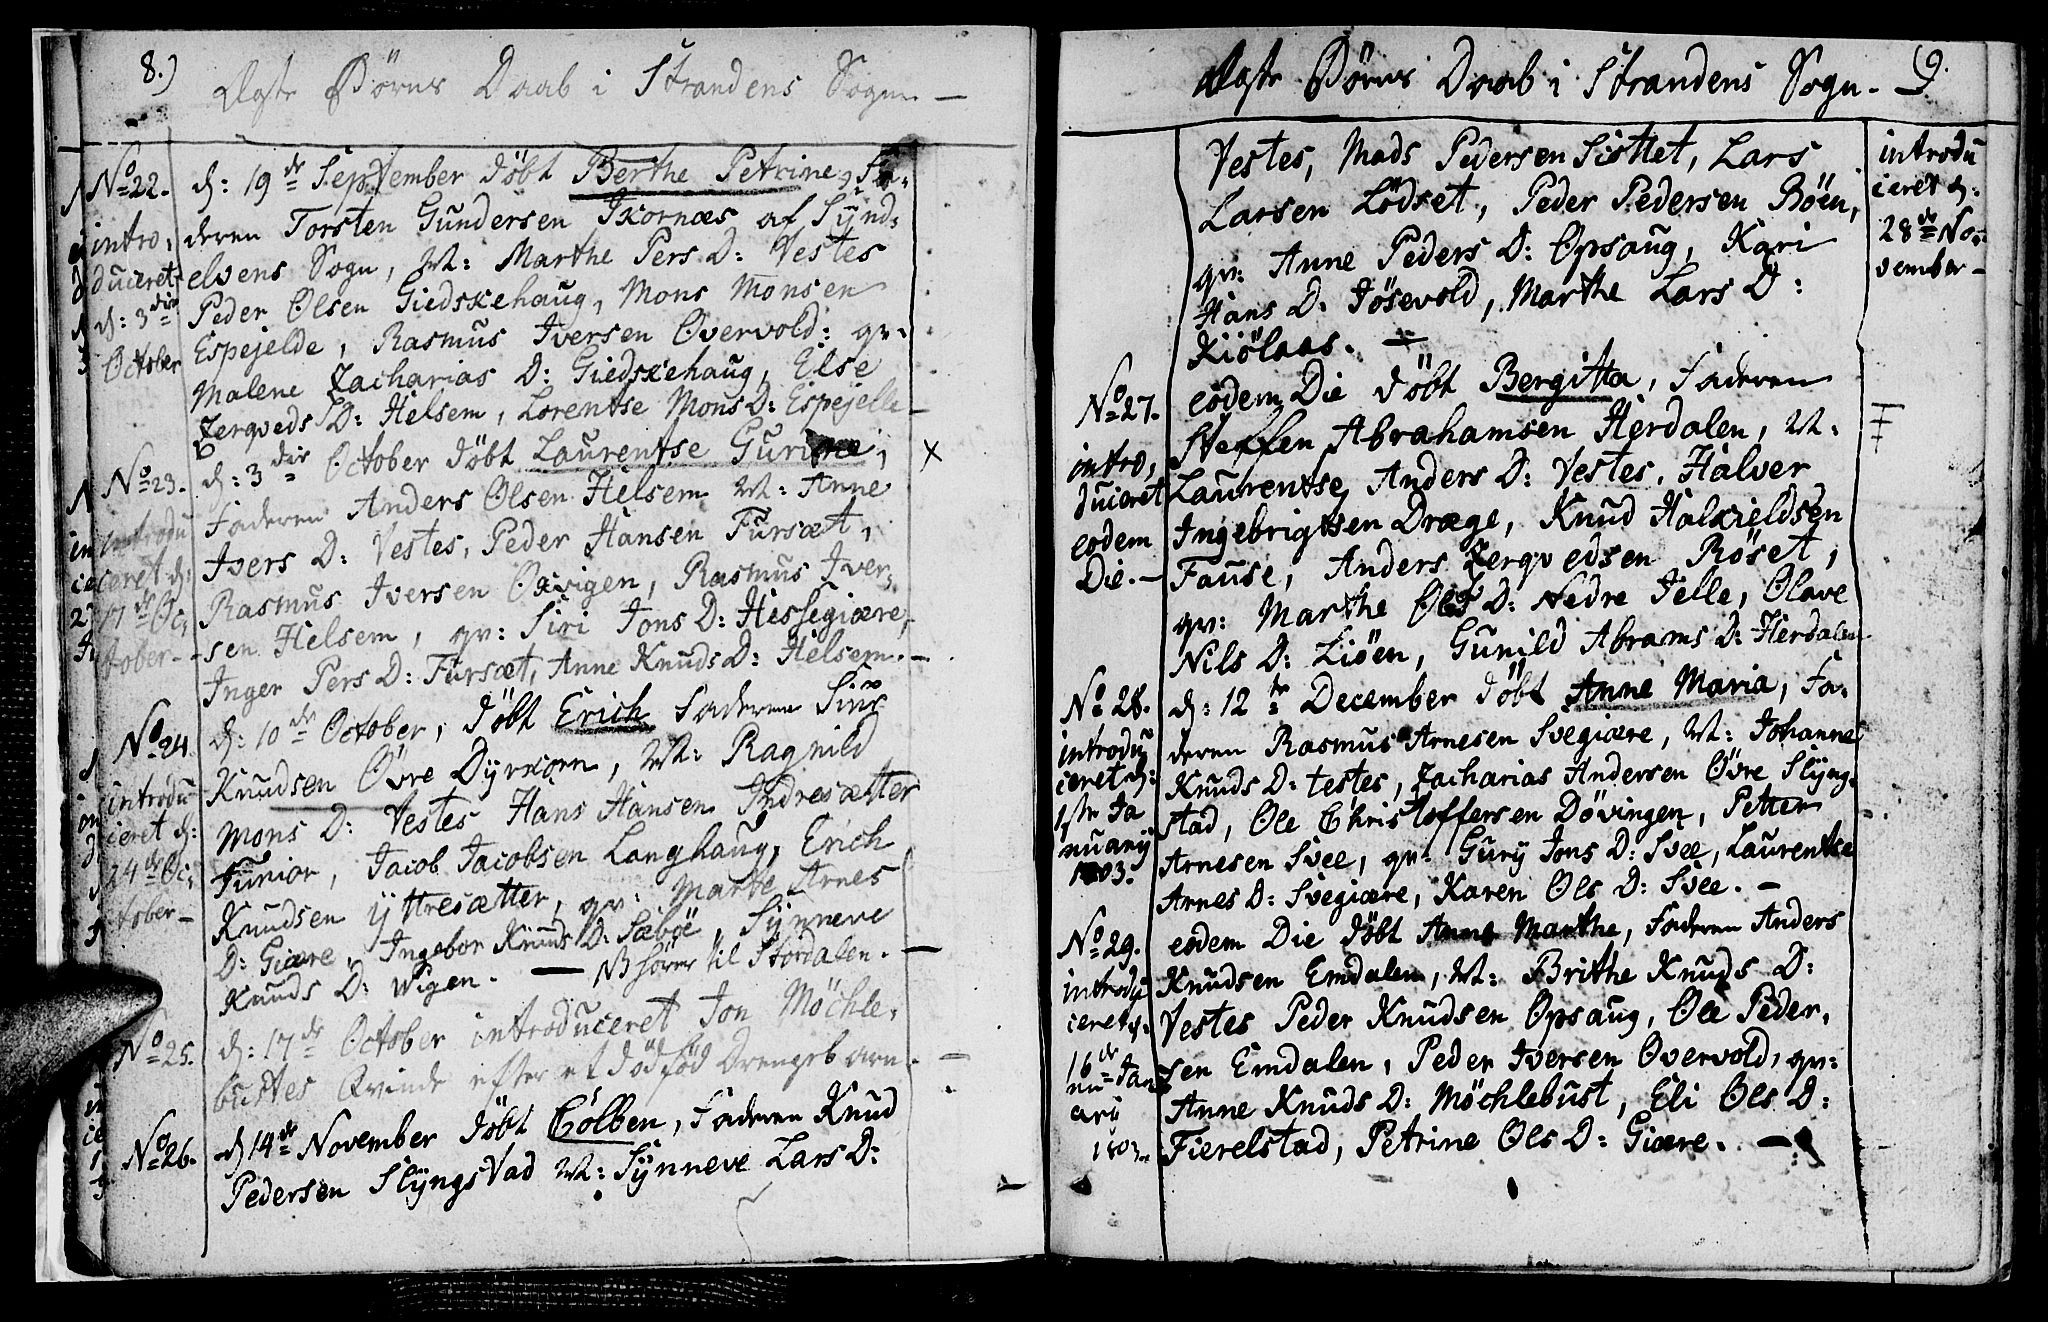 8.)
Ægte Børns Daab i Strandens Sogn —
No 22.
intro,
duceret
d: 3die
October
d: 19de September døbt Berthe Petrine, Fa-
deren Torsten Gundersen Ikornæs af Synd-
elvens Sogn, M: Marthe Pers D: Vestes
Peder Olsen Giedskehaug, Mons Monsen
Espejelde, Rasmus Iversen Overvold: qv:
Malene Zacharias D: Giedskehaug, Else
Zergveds D: Helsem, Lorentse Mons D: Espejelle —
No 23.
introdu
ceret d:
17de Oc,
tober —
d: 3die October døbt Laurentse Gurine,
Faderen Anders Olsen Helsem M: Anne
Ivers D: Vestes, Peder Hansen Fursæt,
Rasmus Iversen Oxvigen, Rasmus Iver,
sen Helsem, qv: Siri Jons D: Hessegiære,
Inger Pers D: Fursæt, Anne Knuds D: Helsem. —
No 24
introdu
ceret d:
24de Oc,
tober —
d: 10de October, døbt Erich Faderen Siur
Knudsen Øvre Dyrkorn, M: Ragnild
Mons D: Vestes Hans Hansen Indresætter
Junior, Jacob Jacobsen Langhaug, Erich
Knudsen Yttresætter, qv: Marte Arnes
D: Giære, Ingebor Knuds D: Sæbøe, Synneve
Knuds D: Wigen. — NB hører til Stordalen. —
No 25.
d: 17de October introduceret Jon Möchle,
bustes Qvinde efter et dødfød Drengebarn. —
No 26.
d 14de November døbt Colben, Faderen Knud
Pedersen Slyngstad M: Synneve Lars D:
Ægte Børns Daab i Strandens Sogn. — 9.
Vestes, Mads Pedersen Sisttet, Lars
Larsen Lødset, Peder Pedersen Røen,
qv: Anne Peders D: Opsaug, Kari
Hans D: Jøsevold, Marthe Lars D:
Kiölaas. —
introdu
ceret d:
28de No-
vember —
No 27.
intro,
duceret
eodem
Die. —
eodem Die døbt Bergitta, Faderen
Steffen Abrahamsen Herdalen, M:
Laurentse Anders D: Vestes, Halver
Ingebrigtsen Dræge, Knud Halkieldsen
Fause, Anders Zergvedsen Røset,
qv: Marthe Ols D: Nedre Jelle, Olave
Nils D: Liøen, Gunild Abrams D: Herdalen
No 28.
introdu
ceret d:
1ste Ja
nuarij
1803.
d: 12te December døbt Anne Maria, Fa-
deren Rasmus Arnesen Svegiære, M: Johanne
Knuds D: testes, Zacharias Andersen Øvre Slyng-
stad, Ole Christoffersen Døvingen, Petter
Arnesen Svee, qv: Gury Jons D: Svee, Laurentse
Arnes D: Svegiære, Karen Ols D: Svee. —
No 29.
introdu
ceret d:
16de
Janu
arij
1803.
eodem Die døbt Anne Marthe, Faderen Anders
Knudsen Emdalen, M: Brithe Knuds D:
Vestes Peder Knudsen Opsaug, Ole Peder,
sen Emdalen, Peder Iversen Overvold, qv:
Anne Knuds D: Möchlebust, Eli Ols D:
Fierelstad, Petrine Ols D: Giære. —